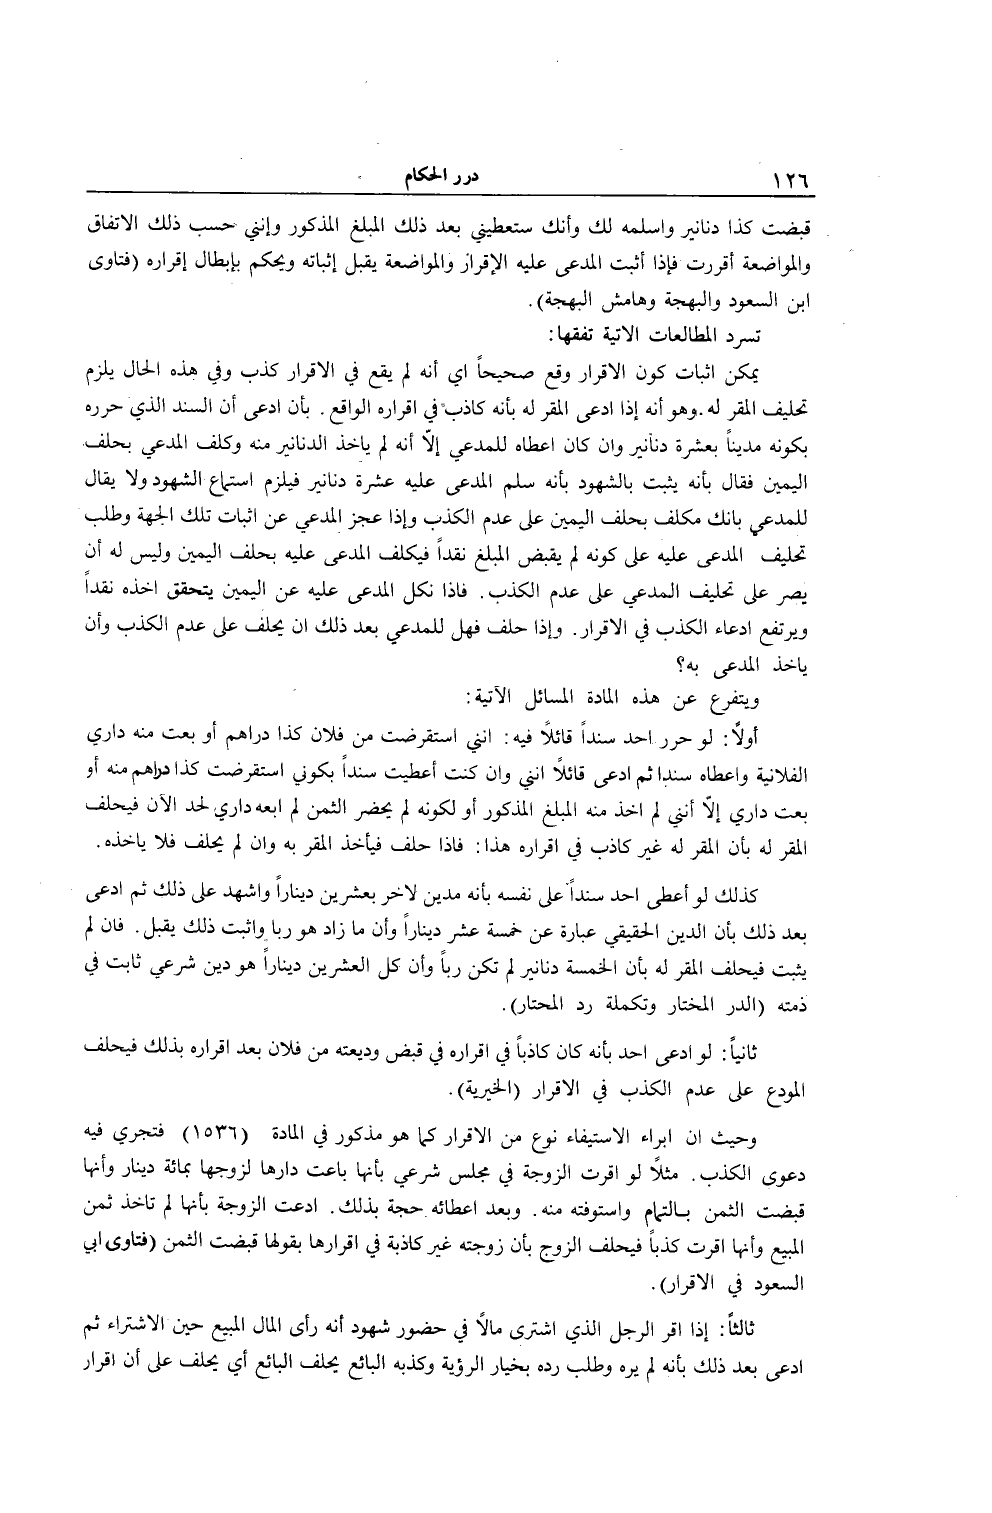 ١٢٦ درر الحكام
قبضت كذا دنانير واسلمه لك وأنك ستعطيني بعد ذلك المبلغ المذكور وإنني حسب ذلك الاتفاق
والمواضعة أقررت فإذا أثبت المدعى عليه الإقرار والمواضعة يقبل إثباته ويحكم بإبطال إقراره (فتاوى
ابن السعود والبهجة وهامش البهجة).
تسرد المطالعات الاتية تفقها:
يمكن اثبات كون الاقرار وقع صحيحاً اي أنه لم يقع في الاقرار كذب وفي هذه الحال يلزم
تحليف المقر له. وهو أنه إذا ادعى المقر له بأنه كاذب في اقراره الواقع. بأن ادعى أن السند الذي حرره
بكونه مديناً بعشرة دنأنير وان كان اعطاه للمدعي إلّا أنه لم ياخذ الدنانير منه وكلف المدعي بحلف
اليمين فقال بأنه يثبت بالشهود بأنه سلم المدعى عليه عشرة دنانير فيلزم استماع الشهود ولا يقال
للمدعي بانك مكلف بحلف اليمين على عدم الكذب وإذا عجز المدعي عن اثبات تلك الجهة وطلب
تحليف المدعى عليه على كونه لم يقبض المبلغ نقداً فيكلف المدعى عليه بحلف اليمين وليس له أن
يصر على تحليف المدعي على عدم الكذب. فاذا نكل المدعى عليه عن اليمين يتحقق اخذه نقداً
ويرتفع ادعاء الكذب في الاقرار. وإذا حلف فهل للمدعي بعد ذلك ان يحلف على عدم الكذب وأن
ياخذ المدعى به؟
ويتفرع عن هذه المادة المسائل الآتية:
أولًا: لو حرر احد سنداً قائلًا فيه: انني استقرضت من فلان كذا دراهم أو بعت منه داري
الفلانية واعطاه سندا ثم ادعى قائلًا انني وان كنت أعطيت سنداً بكوني استقرضت كذا دراهم منه أو
بعت داري إلّا أنني لم اخذ منه المبلغ المذكور أو لكونه لم يحضر الثمن لم ابعه داري لحد الآن فيحلف
المقر له بأن المقر له غير كاذب في اقراره هذا: فاذا حلف فيأخذ المقر به وان لم يحلف فلا ياخذه.
كذلك لو أعطى احد سنداً على نفسه بأنه مدين لاخر بعشرين ديناراً واشهد على ذلك ثم ادعى
بعد ذلك بأن الدين الحقيقي عبارة عن خمسة عشر ديناراً وأن ما زاد هو ربا واثبت ذلك يقبل. فان لم
يثبت فيحلف المقر له بأن الخمسة دنانير لم تكن رباً وأن كل العشرين ديناراً هو دين شرعي ثابت في
ذمته (الدر المختار وتكملة رد المحتار).
ثانياً: لو ادعى احد بأنه كان كاذباً في اقراره في قبض وديعته من فلان بعد اقراره بذلك فيحلف
المودع على عدم الكذب في الاقرار (الخيرية).
وحيث ان ابراء الاستيفاء نوع من الاقرار كما هو مذكور في المادة (١٥٣٦) فتجري فيه
دعوى الكذب. مثلًا لو اقرت الزوجة في مجلس شرعي بأنها باعت دارها لزوجها بمائة دينار وأنها
قبضت الثمن بالتمام واستوفته منه. وبعد اعطائه حجة بذلك. ادعت الزوجة بأنها لم تاخذ ثمن
المبيع وأنها اقرت كذباً فيحلف الزوج بأن زوجته غير كاذبة في اقرارها بقولها قبضت الثمن (فتاوى ابي
السعود في الاقرار).
ثالثاً: إذا اقر الرجل الذي اشترى مالًا في حضور شهود أنه رأى المال المبيع حين الاشتراء ثم
ادعى بعد ذلك بأنه لم يره وطلب رده بخيار الرؤية وكذبه البائع يحلف البائع أي يحلف على أن اقرار